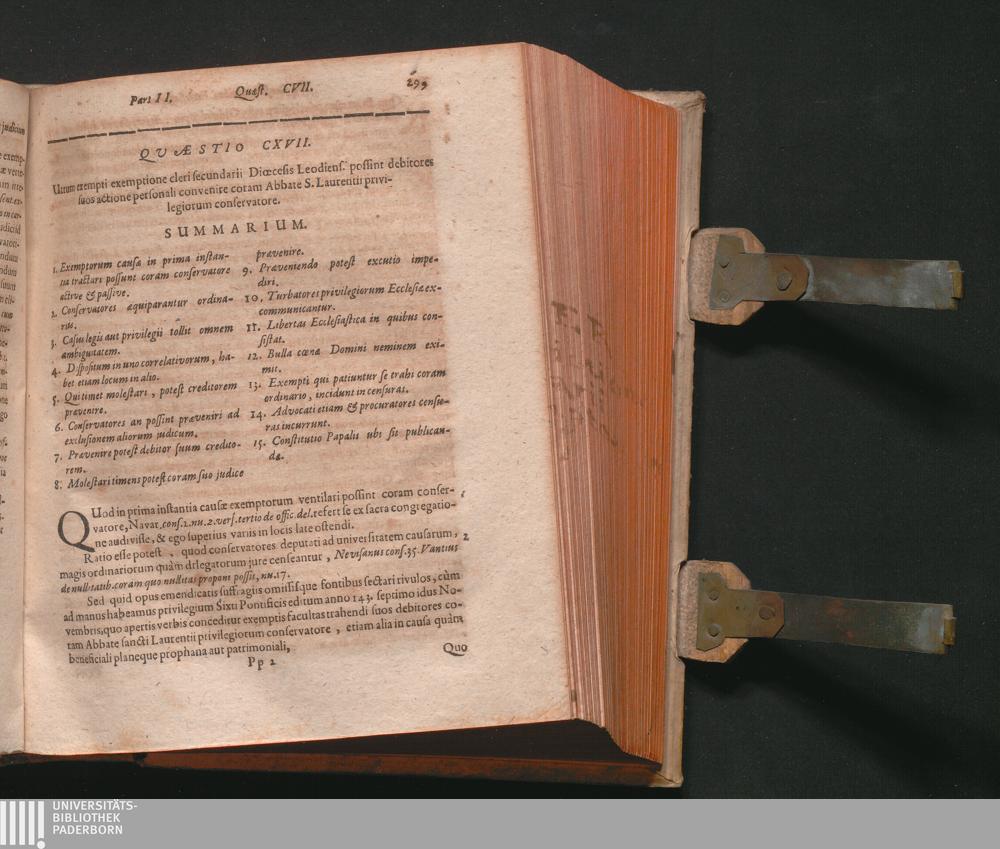 Part II. Quæst. CVII. 299
QVÆSTIO CXVII.
Utrum exempti exemptione cleri secundarii Diœcesis Leodiens. possint debitores
suos actione personali convenire coram Abbate S. Laurentii privi-
legiorum conservatore.
SUMMARIUM.
1. Exemptorum causa in prima instan-
tia tractari possunt coram conservatore
active & passive.
2. Conservatores æquiparantur ordina-
riis.
3. Casus legis aut privilegii tollit omnem
ambiguitatem.
4. Dispositum in uno correlativorum, ha-
bet etiam locum in alio.
5. Qui timet molestari, potest creditorem
prævenire.
6. Conservatores an possint præveniri ad
exclusionem aliorum judicum.
7. Prævenire potest debitor suum credito-
rem.
8. Molestari timens potest coram suo judice
prævenire.
9. Præveniendo potest excutio impe-
diri.
10. Turbatores privilegiorum Ecclesiæ ex-
communicantur.
11. Libertas Ecclesiastica in quibus con-
sistat.
12. Bulla cœnæ Domini neminem exi-
mit.
13. Exempti qui patiuntur se trahi coram
ordinario, incidunt in censuras.
14. Advocati etiam & procuratores censu-
ras incurrunt.
15. Constitutio Papalis ubi sit publican-
da.
QUod in prima instantia causæ exemptorum ventilari possint coram conser- 1
vatore, Navar. cons. 1. nu. 2. vers. tertio de offic. del. refert se ex sacra congregatio-
ne audivisse, & ego superius variis in locis late ostendi.
Ratio esse potest, quod conservatores deputati ad universitatem causarum, 2
magis ordinariorum quàm delegatorum jure censeantur, Nevisanus cons. 35. Vantius
de nullitatib. coram quo nullitas proponi possit, nu. 17.
Sed quid opus emendicatis suffragiis omissisque fontibus sectari rivulos, cùm
ad manus habeamus privilegium Sixti Pontificis editum anno 143. septimo idus No-
vembris, quo apertis verbis conceditur exemptis facultas trahendi suos debitores co-
ram Abbate sancti Laurentii privilegiorum conservatore, etiam alia in causa quàm
beneficiali planeque prophana aut patrimoniali,
Pp 2 Quo
UNIVERSITÄTS-
BIBLIOTHEK
PADERBORN